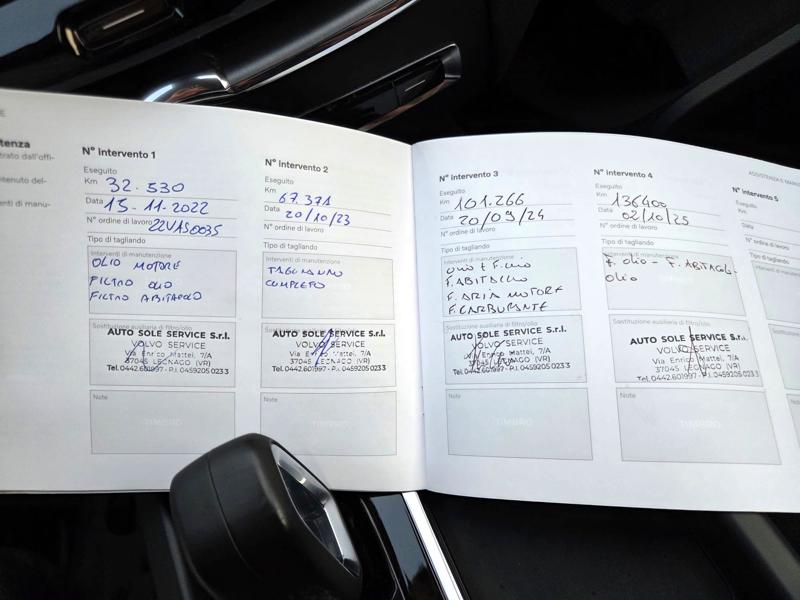 E
tenza
trato dall'offi-
ntenuto del-
enti di manu-
N° intervento 1
Eseguito
Km 32.530
Data 15-11-2022
N° ordine di lavoro 22VAS0035
Tipo di tagliando
Interventi di manutenzione
OLIO MOTORE
FILTRO OLIO
FILTRO ABITACOLO
Sostituzione ausiliaria di filtro/olio
AUTO SOLE SERVICE S.r.l.
VOLVO SERVICE
Via Enrico Mattei, 7/A
37045 LEGNAGO (VR)
Tel. 0442.601997 - P.I. 0459205 023 3
Note
TIMBRO
N° intervento 2
Eseguito
Km 67.371
Data 20/10/23
N° ordine di lavoro
Tipo di tagliando
Interventi di manutenzione
TAGLIANDO
COMPLETO
Sostituzione ausiliaria di filtro/olio
AUTO SOLE SERVICE S.r.l.
VOLVO SERVICE
Via Enrico Mattei, 7/A
37045 LEGNAGO (VR)
Tel. 0442.601997 - P.I. 0459205 023 3
Note
TIMBRO
N° intervento 3
Eseguito
Km 101.266
Data 20/09/24
N° ordine di lavoro
Tipo di tagliando
Interventi di manutenzione
OLIO + F. OLIO
F. ABITACOLO
F. ARIA MOTORE
F. CARBURANTE
Sostituzione ausiliaria di filtro/olio
AUTO SOLE SERVICE S.r.l.
VOLVO SERVICE
Via Enrico Mattei, 7/A
37045 LEGNAGO (VR)
Tel. 0442.601997 - P.I. 0459205 023 3
Note
TIMBRO
N° intervento 4
Eseguito
Km 136400
Data 02/10/25
N° ordine di lavoro
Tipo di tagliando
Interventi di manutenzione
F. OLIO - F. ABITACOLO -
OLIO
Sostituzione ausiliaria di filtro/olio
AUTO SOLE SERVICE S.r.l.
VOLVO SERVICE
Via Enrico Mattei, 7/A
37045 LEGNAGO (VR)
Tel. 0442.601997 - P.I. 0459205 023 3
Note
TIMBRO
ASSISTENZA E MANU
N° intervento 5
Eseguito
Km
Data
N° ordine di
Tipo di taglian
Interventi di
Sostituzione
Note